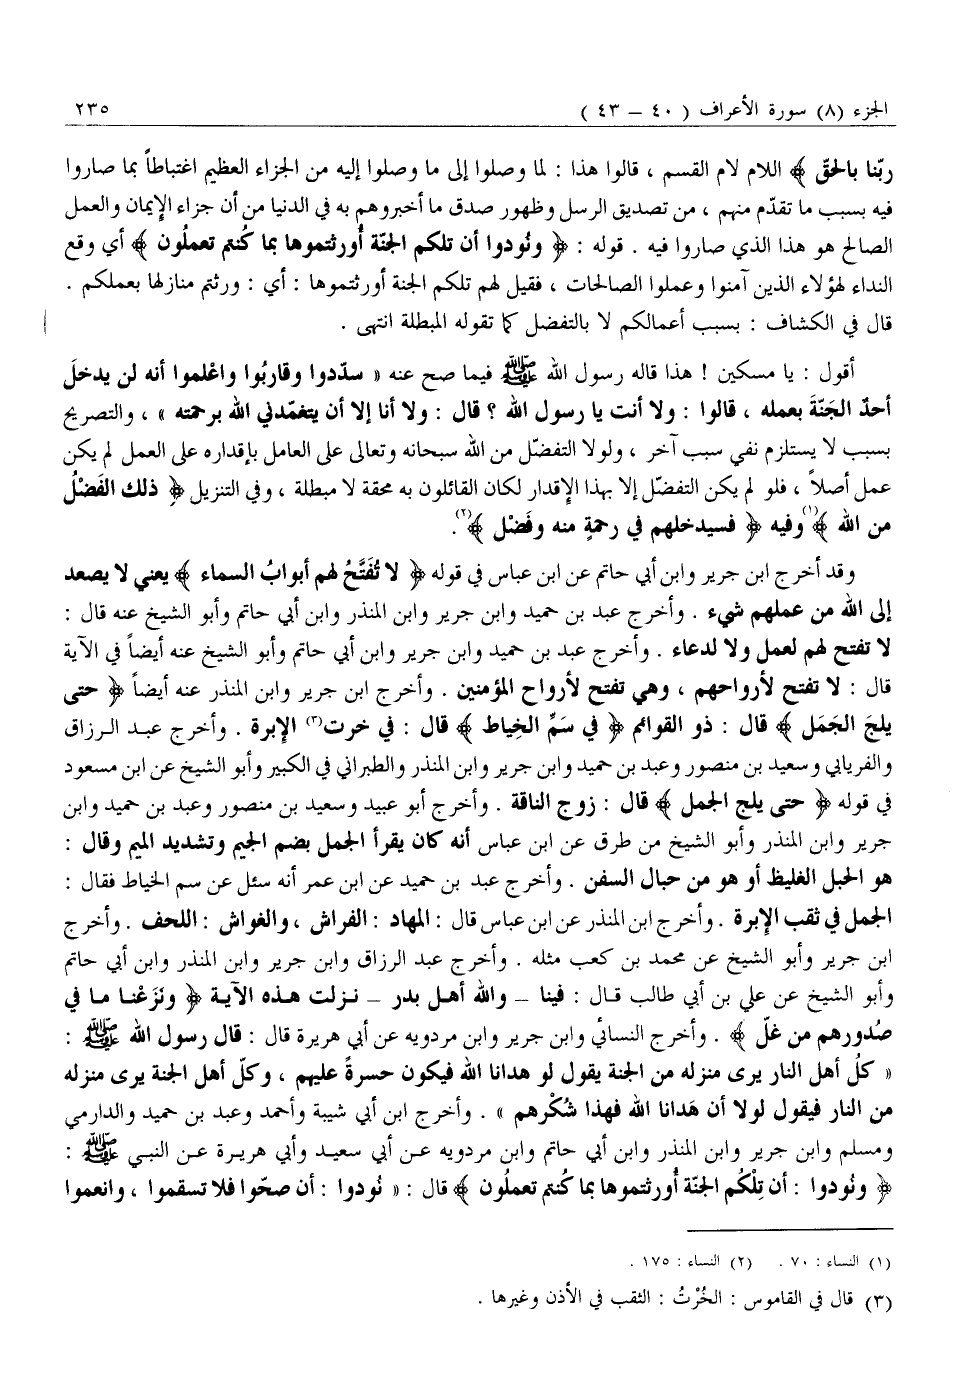 الجزء (٨) سورة الأعراف ( ٤٠ – ٤٣ ) ٢٣٥
ربّنا بالحقّ ﴾ اللام لام القسم ، قالوا هذا : لما وصلوا إلى ما وصلوا إليه من الجزاء العظيم اغتباطاً بما صاروا
فيه بسبب ما تقدّم منهم ، من تصديق الرسل وظهور صدق ما أخبروهم به في الدنيا من أن جزاء الإيمان والعمل
الصالح هو هذا الذي صاروا فيه . قوله : ﴿ ونُودوا أن تلكم الجنّة أُورثتموها بما كُنتم تعملُون ﴾ أي وقع
النداء لهؤلاء الذين آمنوا وعملوا الصالحات ، فقيل لهم تلكم الجنة أورثتموها : أي : ورثتم منازلها بعملكم .
قال في الكشاف : بسبب أعمالكم لا بالتفضل كما تقوله المبطلة انتهى .
أقول : يا مسكين ! هذا قاله رسول الله ﷺ فيما صح عنه « سدّدوا وقاربُوا واعْلموا أنه لن يدخلَ
أحدٌ الجَنّةَ بعمله ، قالوا : ولا أنت يا رسول الله ؟ قال : ولا أنا إلا أن يتغمّدني الله برحمته » ، والتصريح
بسبب لا يستلزم نفي سبب آخر ، ولولا التفضّل من الله سبحانه وتعالى على العامل بإقداره على العمل لم يكن
عمل أصلاً ، فلو لم يكن التفضّل إلا بهذا الإقدار لكان القائلون به محقة لا مبطلة ، وفي التنزيل ﴿ ذلك الفَضْلُ
من الله ﴾(١) وفيه ﴿ فسيدخلهم في رحمةٍ منه وفَضْل ﴾(٢).
وقد أخرج ابن جرير وابن أبي حاتم عن ابن عباس في قوله ﴿ لا تُفَتَّحُ لهم أبوابُ السماء ﴾ يعني لا يصعد
إلى الله من عملهم شيء . وأخرج عبد بن حميد وابن جرير وابن المنذر وابن أبي حاتم وأبو الشيخ عنه قال :
لا تفتح لهم لعمل ولا لدعاء . وأخرج عبد بن حميد وابن جرير وابن أبي حاتم وأبو الشيخ عنه أيضاً في الآية
قال : لا تفتح لأرواحهم ، وهي تفتح لأرواح المؤمنين . وأخرج ابن جرير وابن المنذر عنه أيضاً ﴿ حتى
يلجَ الجَمَل ﴾ قال : ذو القوائم ﴿ في سَمِّ الخِياط ﴾ قال : في خرت(٣) الإبرة . وأخرج عبد الرزاق
والفريابي وسعيد بن منصور وعبد بن حميد وابن جرير وابن المنذر والطبراني في الكبير وأبو الشيخ عن ابن مسعود
في قوله ﴿ حتى يلج الجمل ﴾ قال : زوج الناقة . وأخرج أبو عبيد وسعيد بن منصور وعبد بن حميد وابن
جرير وابن المنذر وأبو الشيخ من طرق عن ابن عباس أنه كان يقرأ الجمل بضم الجيم وتشديد الميم وقال :
هو الحبل الغليظ أو هو من حبال السفن . وأخرج عبد بن حميد عن ابن عمر أنه سئل عن سم الخياط فقال :
الجمل في ثقب الإبرة . وأخرج ابن المنذر عن ابن عباس قال : المهاد : الفراش ، والغواش : اللحف . وأخرج
ابن جرير وأبو الشيخ عن محمد بن كعب مثله . وأخرج عبد الرزاق وابن جرير وابن المنذر وابن أبي حاتم
وأبو الشيخ عن علي بن أبي طالب قال : فينا – والله أهل بدر – نزلت هذه الآية ﴿ ونَزَعْنا ما في
صُدورهم من غلّ ﴾ . وأخرج النسائي وابن جرير وابن مردويه عن أبي هريرة قال : قال رسول الله ﷺ :
« كلّ أهل النار يرى منزله من الجنة يقول لو هدانا الله فيكون حسرةً عليهم ، وكلّ أهل الجنة يرى منزله
من النار فيقول لولا أن هَدانا الله فهذا شُكْرهم » . وأخرج ابن أبي شيبة وأحمد وعبد بن حميد والدارمي
ومسلم وابن جرير وابن المنذر وابن أبي حاتم وابن مردويه عن أبي سعيد وأبي هريرة عن النبي ﷺ :
﴿ ونُودوا : أن تِلْكُم الجنّة أُورثتموها بما كُنتم تعملُون ﴾ قال : « نُودوا : أن صحّوا فلا تسقموا ، وانعموا
(١) النساء : ٧٠ . (٢) النساء : ١٧٥ .
(٣) قال في القاموس : الخُرْتُ : الثقب في الأذن وغيرها .